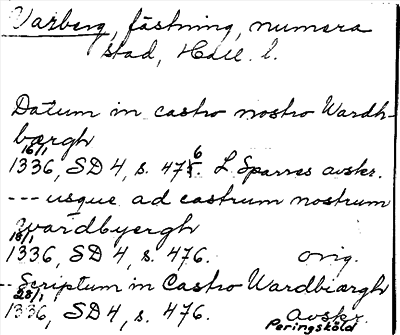 Varberg, fästning, numera
stad, Hall. l.
Datum in castro nostro Wardh-
bærgh
16/1
1336, SD 4, s. 476. L. Sparres avskr.
--- usque ad castrum nostrum
Wardbyergh
18/1
1336, SD 4, s. 476. orig.
-- Scriptum in Castro Wardbiærgh
28/1
1336, SD 4, s. 476. avskr.
Peringskiöld